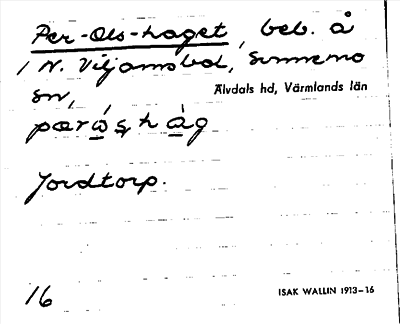 Per-Ols-haget, beb. å
/ N. Viljamsbol, Sunnemo
sn,
Älvdals hd, Värmlands län
Jordtorp.
16
ISAK WALLIN 1913–16